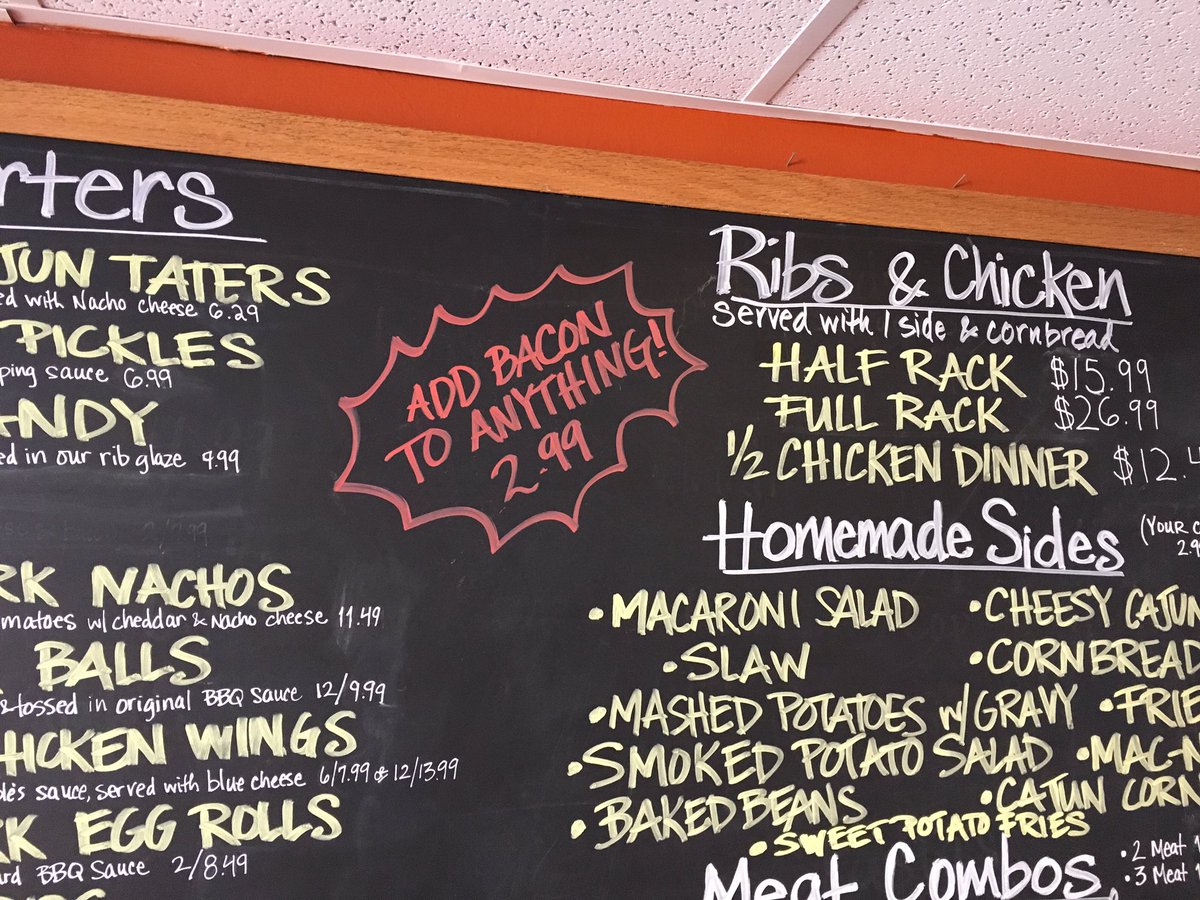 rters
JUN TATERS
ed with Nacho cheese 6.29
PICKLES
ping sauce 6.99
ANDY
ed in our rib glaze 9.99
RK NACHOS
matoes w/ cheddar & Nacho cheese 11.49
BALLS
& tossed in original BBQ sauce 12/9.99
HICKEN WINGS
ble's sauce, served with blue cheese 6/7.99 & 12/13.99
RK EGG ROLLS
ard BBQ Sauce 2/8.49
ADD BACON
TO ANYTHING!
2.99
Ribs & Chicken
Served with 1 side & cornbread
HALF RACK $15.99
FULL RACK $26.99
1/2 CHICKEN DINNER $12.4
Homemade Sides (YOUR C
2.9
• MACARONI SALAD
• SLAW
• MASHED POTATOES w/ GRAVY
• SMOKED POTATO SALAD
• BAKED BEANS
• CHEESY CAJUN
• CORNBREAD
• FRIE
• MAC-N
• CAJUN CORN
• SWEET POTATO FRIES
Meat Combos
• 2 Meat
• 3 Meat